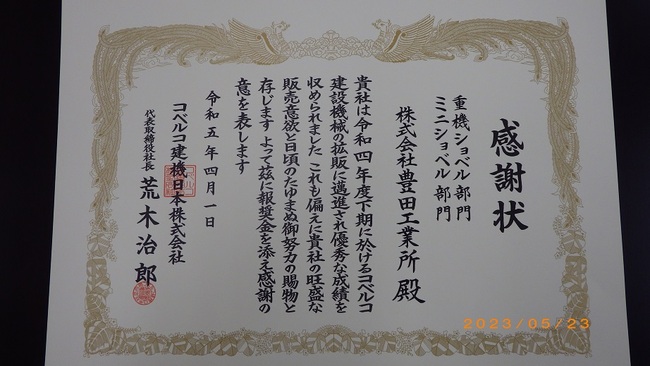 感謝状
重機ショベル部門
ミニショベル部門
株式会社豊田工業所殿
貴社は令和四年度下期に於けるコベルコ
建設機械の拡販に邁進され優秀な成績を
収められました これも偏えに貴社の旺盛な
販売意欲と日頃のたゆまぬ御努力の賜物と
存じます よって茲に報奨金を添え感謝の
意を表します
令和五年四月一日
コベルコ建機日本株式会社
代表取締役社長 荒木治郎
2023/05/23